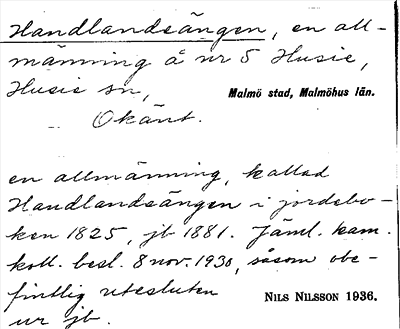 Handlandsängen, en all-
männing å nr 5 Husie,
Husie sn, Malmö stad, Malmöhus län.
Okänt.
en allmänning, kallad
Handlandsängen i jordebo-
ken 1825, jb 1881. Jäml. kam.
koll. besl. 8 nov. 1930, såsom obe-
fintlig utesluten
ur jb. NILS NILSSON 1936.